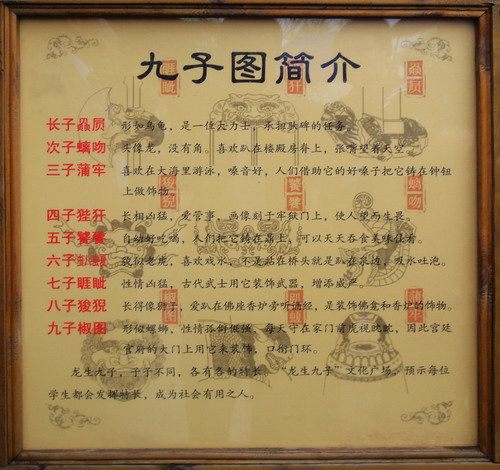 九子图简介
长子赑屃 形如乌龟，是一位大力士，承担驮碑的任务。
次子螭吻 头像龙，没有角。喜欢趴在楼殿房脊上，张嘴望着天空。
三子蒲牢 喜欢在大海里游泳，嗓音好，人们借助它的好嗓子把它铸在钟钮
上做饰物。
四子狴犴 长相凶猛，爱管事，画像刻于牢狱门上，使人望而生畏。
五子饕餮 自动好吃喝，人们把它铸在鼎上，可以天天吞食美味佳肴。
六子虮蝮 貌似老虎，喜欢戏水，不是站在桥头就是趴在泉边，吸水吐泡。
七子睚眦 性情凶猛，古代武士用它装饰武器，增添威严。
八子狻猊 长得像狮子，爱趴在佛座香炉旁听诵经，是装饰佛龛和香炉的饰物。
九子椒图 形似螺蛳，性情孤倒倔强，每天守在家门前虎视眈眈，因此宫廷
官府的大门上用它来装饰，口衔门环。
龙生九子，子子不同，各有各的特长。“龙生九子”文化广场，预示每位
学生都会发挥特长，成为社会有用之人。
睚眦
狴犴
赑屃
狻猊
饕餮
螭吻
椒图